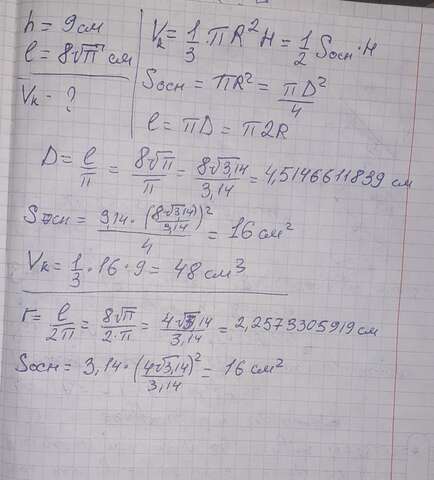 h = 9 см
l = 8√π см
Vк - ?
Vк = 1/3 · πR²H = 1/2 Sосн · H
Sосн = πR² = πD²/4
l = πD = π2R
D = l/π = 8√π/π = 8√3,14/3,14 = 4,5146611839 см
Sосн = 3,14 · (8√3,14/3,14)²/4 = 16 см²
Vк = 1/3 · 16 · 9 = 48 см³
r = l/2π = 8√π/2·π = 4√3,14/3,14 = 2,2573305919 см
Sосн = 3,14 · (4√3,14/3,14)² = 16 см²